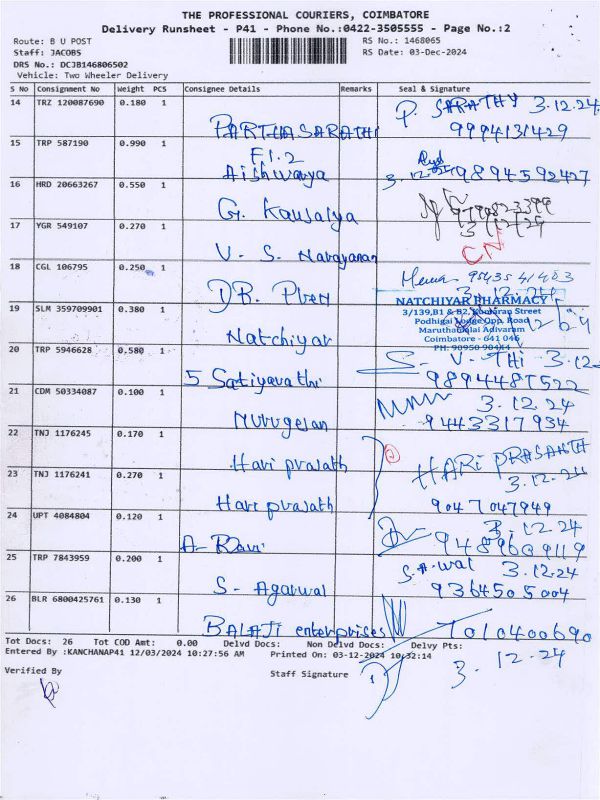 THE PROFESSIONAL COURIERS, COIMBATORE
Delivery Runsheet - P41 - Phone No.:0422-3505555 - Page No.:2
Route: B U POST RS No.: 1468065
Staff: JACOBS RS Date: 03-Dec-2024
DRS No.: DCJB146806502
Vehicle: Two Wheeler Delivery
S No Consignment No Weight PCS Consignee Details Remarks Seal & Signature
14 TRZ 120087690 0.180 1 PARTHASARATHI P. SARATHY 3.12.24
9994131429
15 TRP 587190 0.990 1 F1.2
Aishwarya 9894592427
16 HRD 20663267 0.550 1 G. Kausalya
17 YGR 549107 0.270 1 V. S. Narayanan
18 CGL 106795 0.250 1 DR.
3.12.24
NATCHIYAR PHARMACY
3/139,B1 & B2, Street
Podhigai Opp. Road
Maruthamalai Adivaram
Coimbatore - 641 046
PH: 90950
19 SLM 359709901 0.380 1 Natchiyar
20 TRP 5946628 0.580 1 S Satiyavathi S. V. THI 3.12
9894487522
21 CDM 50334087 0.100 1 Murugesan 3.12.24
9443317934
22 TNJ 1176245 0.170 1 Hari prasath HARI PRASANTH
3.12.24
23 TNJ 1176241 0.270 1 Hari prasath 9047047949
24 UPT 4084804 0.120 1 A- Ravi 3.12.24
9489609119
25 TRP 7843959 0.200 1 S- Agarwal S.A.wal 3.12.24
9364505004
26 BLR 6800425761 0.130 1 BALAJI enterprises 7010400690
3.12.24
Tot Docs: 26 Tot COD Amt: 0.00 Delvd Docs: Non Delvd Docs: Delvy Pts:
Entered By :KANCHANAP41 12/03/2024 10:27:56 AM Printed On: 03-12-2024 10:32:14
Verified By Staff Signature